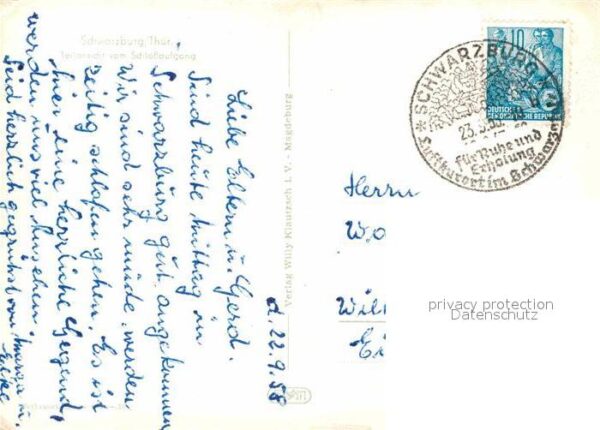 Schwarzburg/Thür.
Teilansicht vom Schloßaufgang
d. 22.9.58
Liebe Eltern u. Gerd.
Sind heute Mittag in
Schwarzburg gut angekommen
Wir sind sehr müde, werden
zeitig schlafen gehen. Es ist
hier eine herrliche Gegend,
werden uns viel ansehen.
Seid herzlich gegrüßt von
Verlag Willy Klautzsch i. V. - Magdeburg
10
DEUTSCHE
DEMOKRATISCHE REPUBLIK
SCHWARZBURG
für Ruhe und
Erholung
Luftkurort im Schwarza
Herrn
privacy protection
Datenschutz